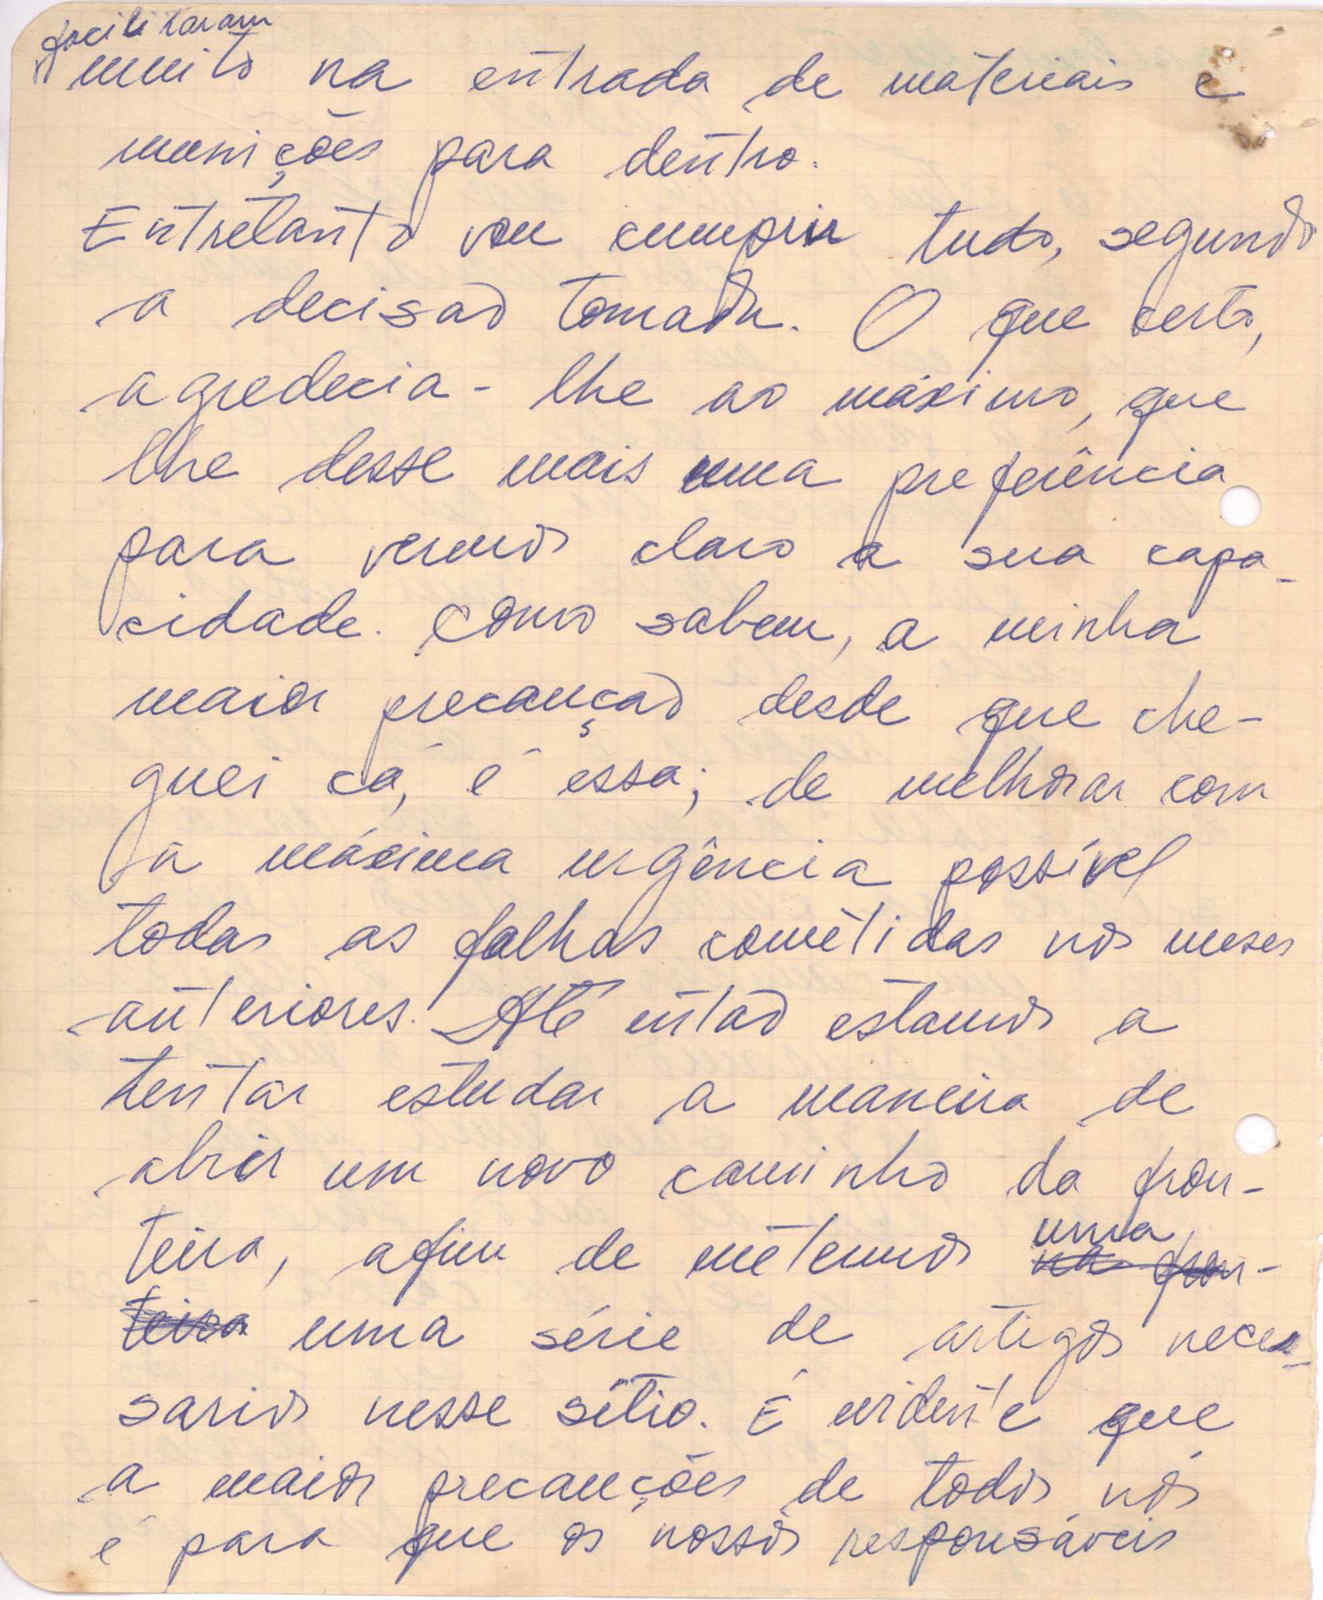 facilitaram
muito na entrada de materiais e
munições para dentro.
Entretanto vou cumprir tudo, segundo
a decisão tomada. O que certo,
agredecia-lhe ao máximo, que
lhe desse mais uma preferência
para vermos claro a sua capa-
cidade. Como sabem, a minha
maior precaução desde que che-
guei cá, é essa; de melhorar com
a máxima urgência possível
todas as falhas cometidas nos meses
anteriores. Até então estamos a
tentar estudar a maneira de
abrir um novo caminho da fron-
teira, afim de metermos uma
na fron-
teira uma série de artigos neces-
sarios nesse sítio. É evidente que
a maior precauções de todos nós
é para que os nossos responsáveis